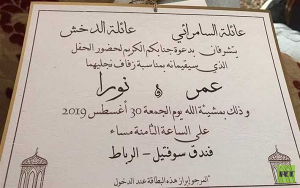 عائلة السامرائي عائلة الدخش
يتشرفان بدعوة جنابكم الكريم لحضور الحفل
الذي سيقيمانه بمناسبة زفاف نجليهما
عمر و نورا
و ذلك بمشيئة الله يوم الجمعة 30 أغسطس 2019
على الساعة الثامنة مساء
فندق سوفتيل - الرباط
المرجو إبراز هذه البطاقة عند الدخول
RT